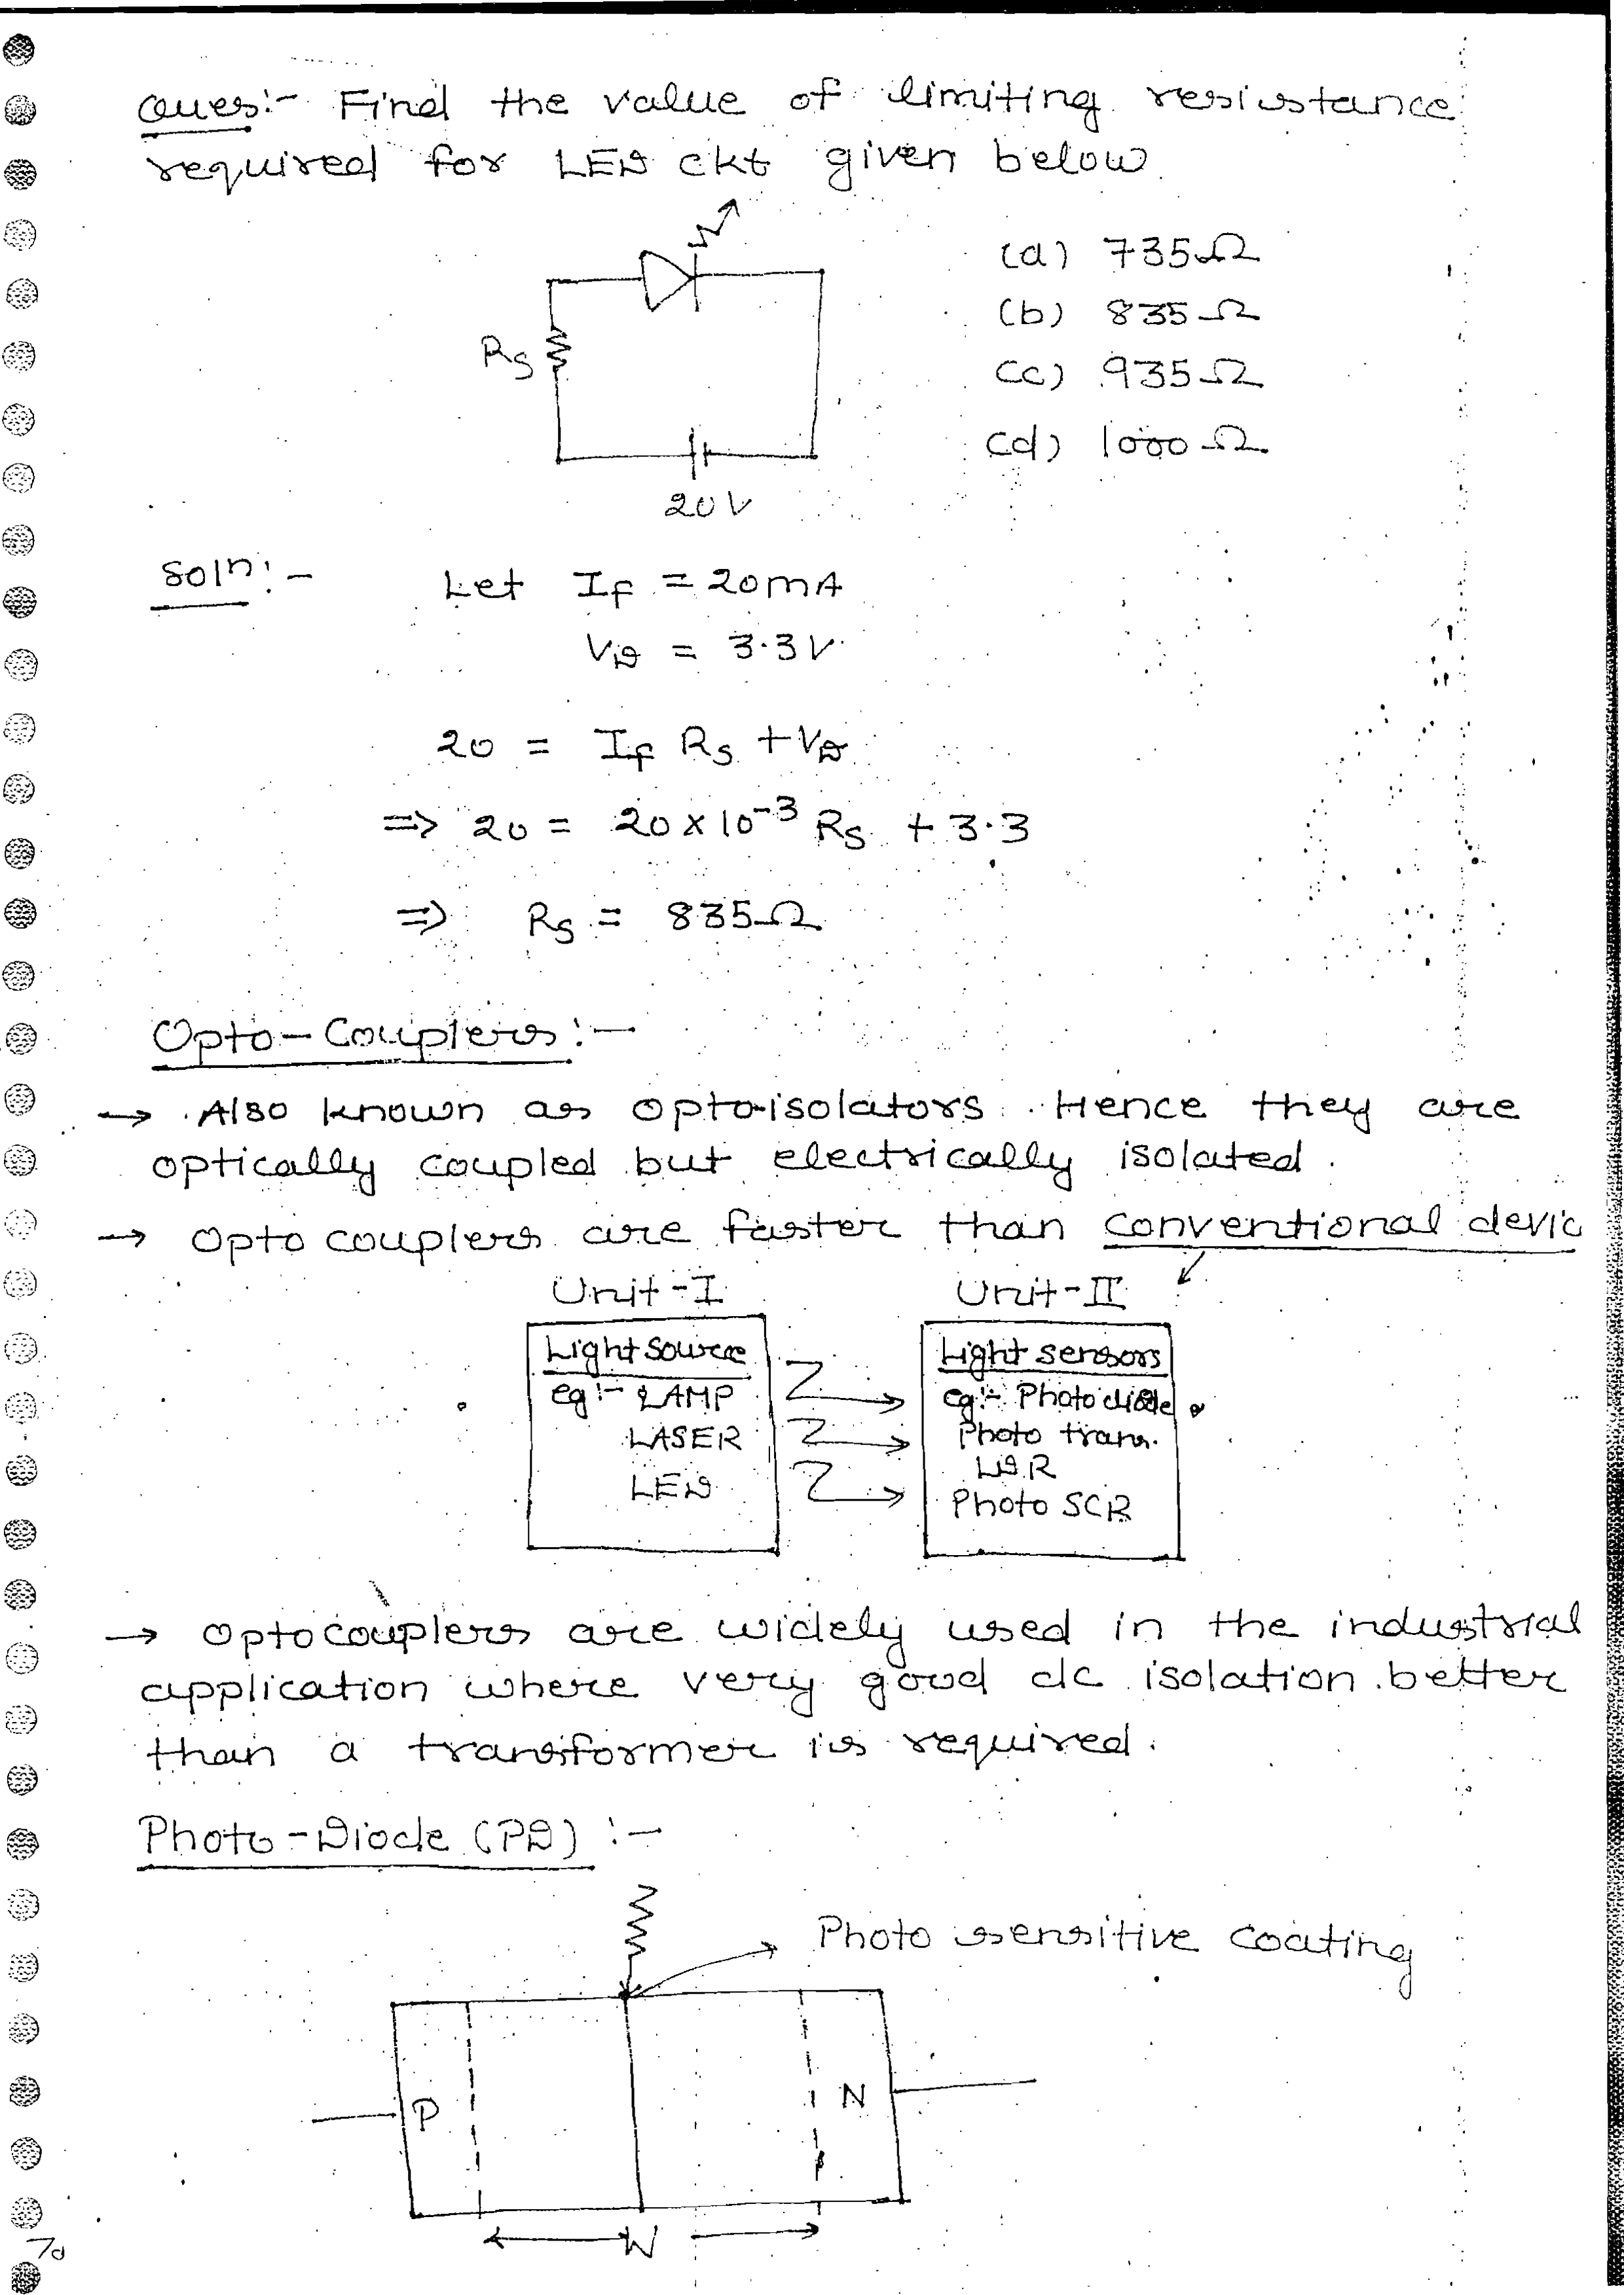 Ques:- Find the value of limiting resistance
required for LED ckt given below.
(a) 735Ω
(b) 835Ω
Rs
(c) 935Ω
(d) 1000Ω
20V
Soln:- Let If = 20mA
VD = 3.3V
20 = If Rs + VD
⇒ 20 = 20×10⁻³ Rs + 3.3
⇒ Rs = 835Ω
Opto-Couplers:-
→ Also known as opto-isolators. Hence they are
optically coupled but electrically isolated.
→ Opto couplers are faster than conventional devic
Unit-I Unit-II
Light Source
eg:- LAMP
LASER
LED
Light sensors
eg:- Photo diode
Photo trans.
LDR
Photo SCR
→ Optocouplers are widely used in the industrial
application where very good dc isolation better
than a transformer is required.
Photo-Diode (PD):-
Photo sensitive coating
P N
W